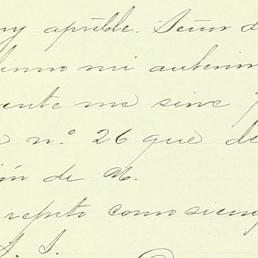 uy apreble. Señor d
ismo mi anterior
ente me sirve
a n.º 26 que de
ión de M.
repito como siemp
S. S.